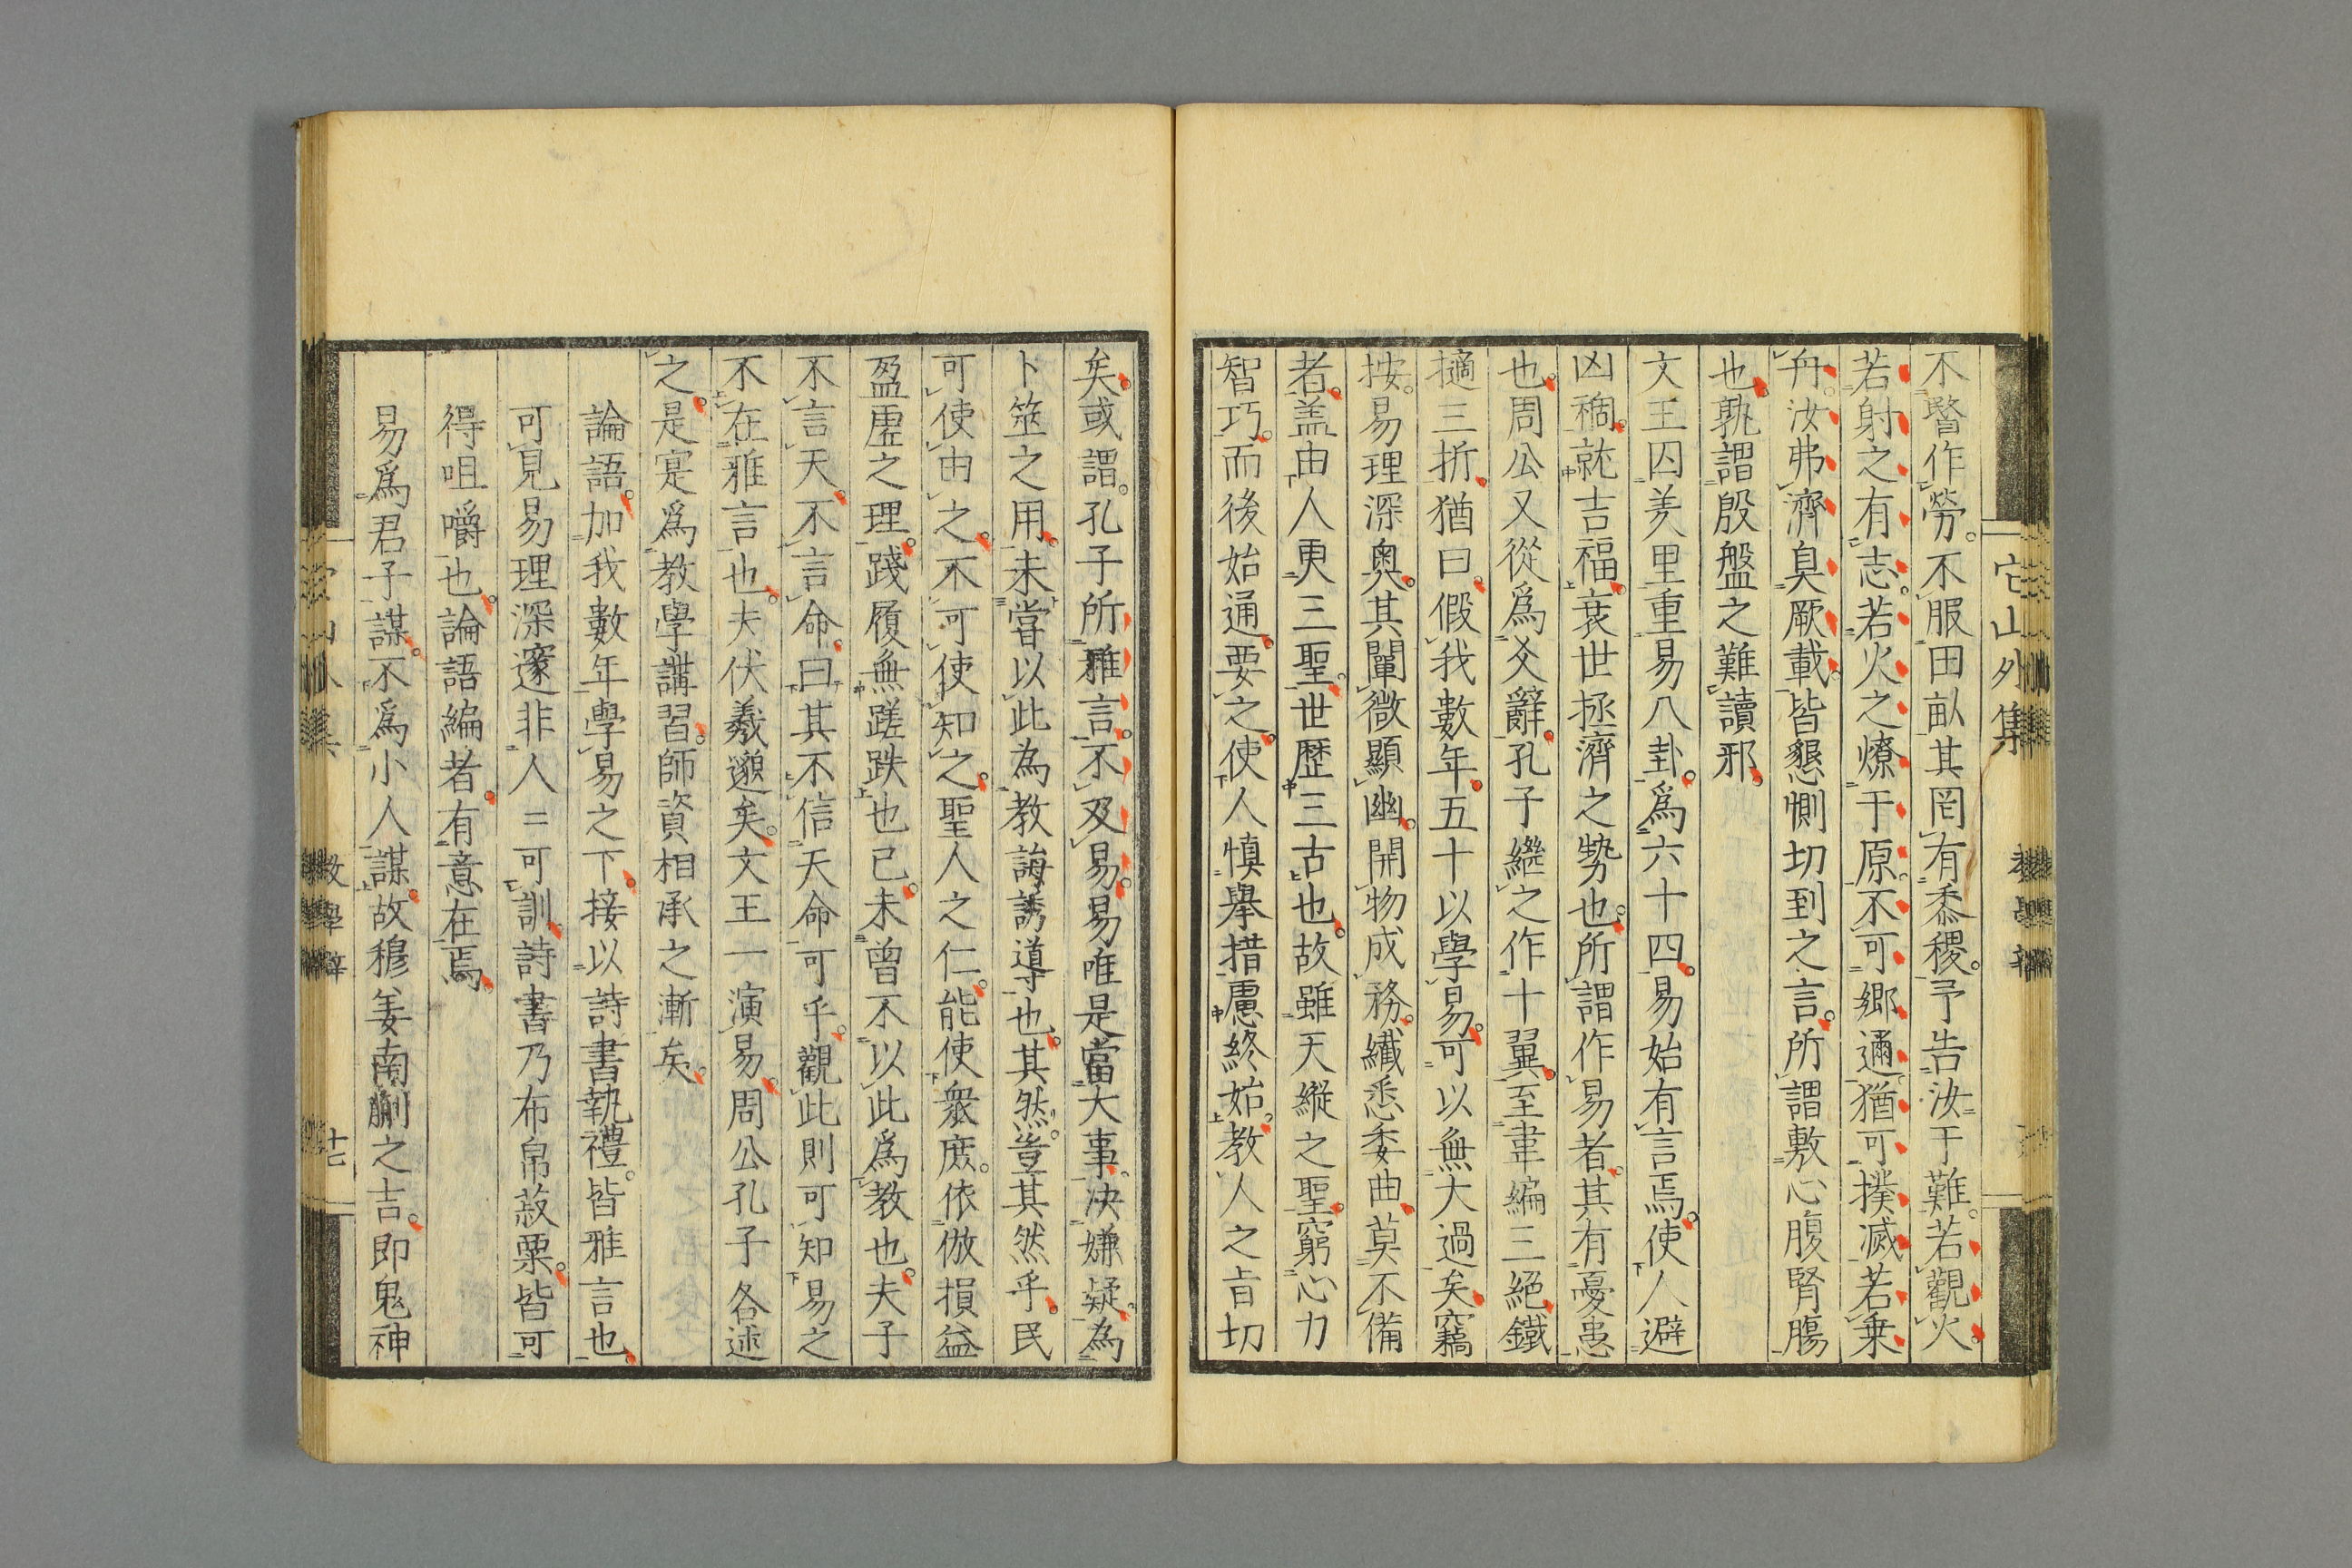 它山外集
不暋作勞。不服田畝其罔有黍稷。予告汝于難。若觀火。
若射之有志。若火之燎于原。不可郷邇猶可撲滅若乗
舟。汝弗濟臭厥載。皆懇惻切到之言。所謂敷心腹腎腸
也。孰謂殷盤之難讀邪。
文王囚羑里重易八卦。爲六十四。易始有言焉。使人避
凶禍。就吉福。衰世拯濟之勢也。所謂作易者。其有憂患
也。周公又從爲爻辭。孔子繼之作十翼。至韋編三絕鐵
擿三折猶曰。假我數年。五十以學易。可以無大過矣竊
按。易理深奥。其闡微顯幽。開物成務。纖悉委曲莫不備
者。盖由人更三聖。世歷三古也。故雖天縱之聖。窮心力
智巧。而後始通。要之。使人慎擧措慮終始。教人之旨切
矣。或謂。孔子所雅言。不及易。易唯是當大事。决嫌疑。為
卜筮之用。未嘗以此為教誨誘導也。其然。豈其然乎。民
可使由之。不可使知之。聖人之仁。能使衆庶。依倣損益
盈虛之理。踐履無蹉跌也已。未曾不以此爲教也。夫子
不言天。不言命。曰其不信天命可乎。觀此則可知易之
不在雅言也。夫伏羲邈矣。文王一演易。周公孔子各述
之。是寔爲教學講習。師資相承之漸矣。
論語。加我數年學易之下。接以詩書執禮。皆雅言也。
可見易理深邃非人〻可訓。詩書乃布帛菽粟。皆可
得咀嚼也。論語編者。有意在焉。
易爲君子謀。不爲小人謀。故穆姜南蒯之吉。即鬼神
教學辨
十七